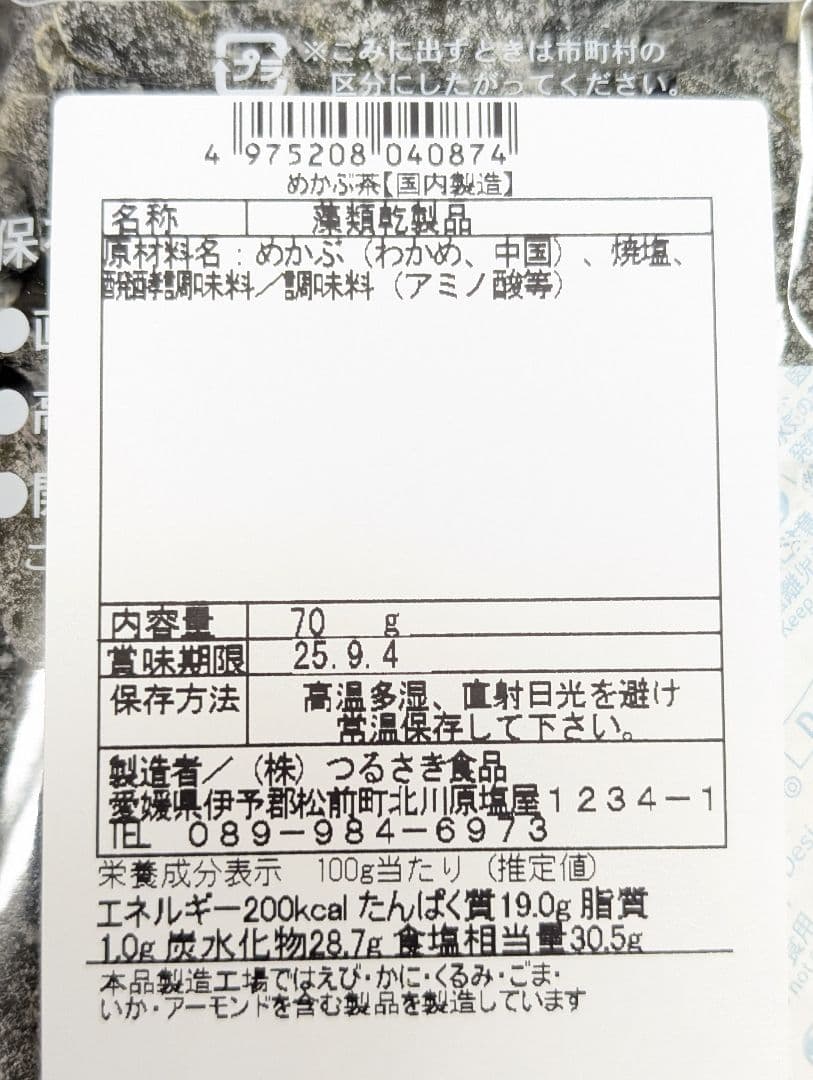 プラ
※ごみに出すときは市町村の
区分にしたがってください。
4 975208 040874
めかぶ茶【国内製造】
名称 藻類乾製品
原材料名：めかぶ（わかめ、中国）、焼塩、
醗酵調味料／調味料（アミノ酸等）
内容量 70 g
賞味期限 25.9.4
保存方法 高温多湿、直射日光を避け
常温保存して下さい。
製造者／（株）つるさき食品
愛媛県伊予郡松前町北川原塩屋１２３４－１
TEL ０８９－９８４－６９７３
栄養成分表示 100g当たり（推定値）
エネルギー200kcal たんぱく質19.0g 脂質
1.0g 炭水化物28.7g 食塩相当量30.5g
本品製造工場ではえび・かに・くるみ・ごま・
いか・アーモンドを含む製品を製造しています